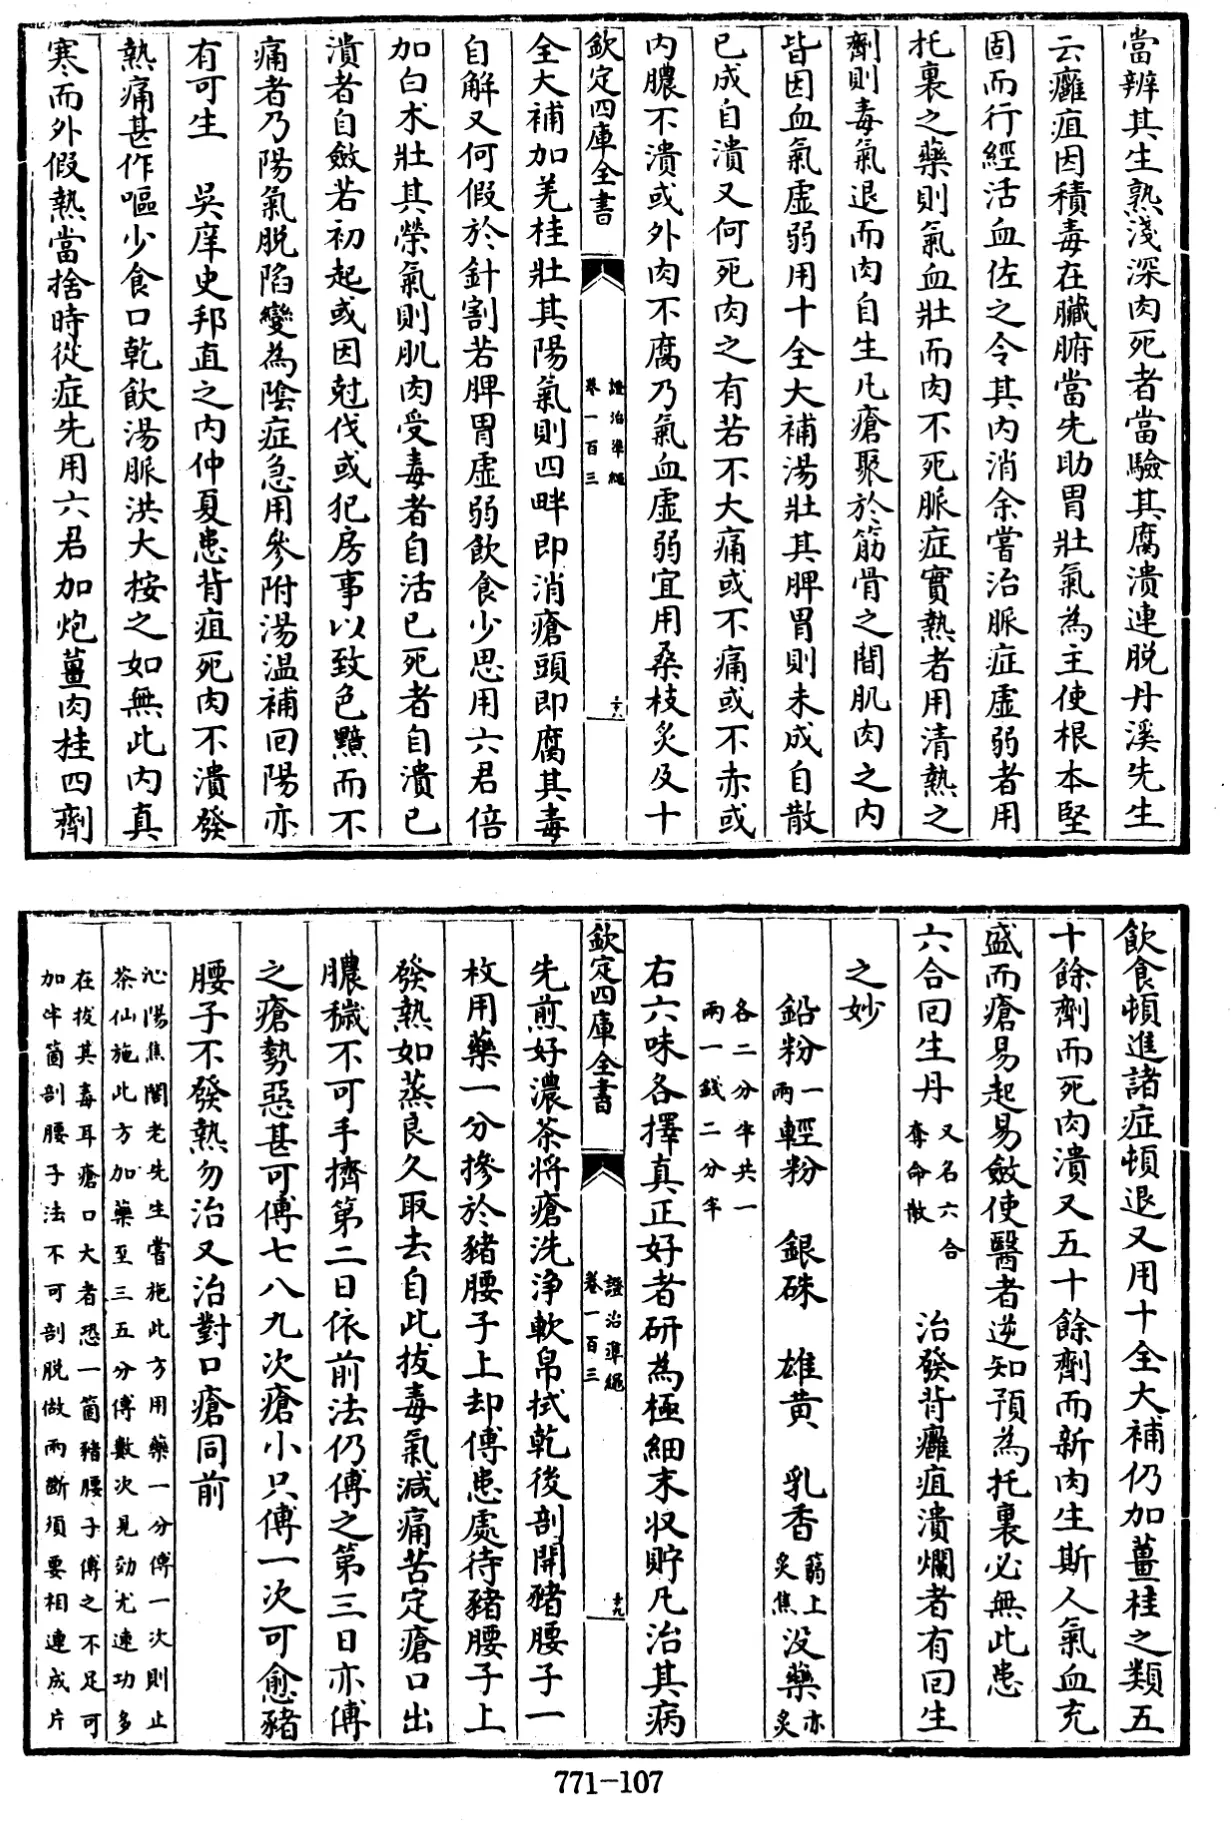 當辨其生熟淺深肉死者當驗其腐潰連脱丹溪先生
云癰疽因積毒在臟腑當先助胃壯氣為主使根本堅
固而行經活血佐之令其内消余嘗治脈症虚弱者用
托裏之藥則氣血壯而肉不死脈症實熱者用清熱之
劑則毒氣退而肉自生凡瘡聚於筋骨之間肌肉之内
皆因血氣虚弱用十全大補湯壯其脾胃則未成自散
已成自潰又何死肉之有若不大痛或不痛或不赤或
内膿不潰或外肉不腐乃氣血虚弱宜用桑枝炙及十
欽定四庫全書
證治準繩
卷一百三
十八
全大補加羌桂壯其陽氣則四畔即消瘡頭即腐其毒
自解又何假於針割若脾胃虚弱飲食少思用六君倍
加白术壯其榮氣則肌肉受毒者自活已死者自潰已
潰者自斂若初起或因尅伐或犯房事以致色黯而不
痛者乃陽氣脱陷變為陰症急用參附湯温補回陽亦
有可生 吳庠史邦直之内仲夏患背疽死肉不潰發
熱痛甚作嘔少食口乾飲湯脈洪大按之如無此内真
寒而外假熱當捨時從症先用六君加炮薑肉桂四劑
飲食頓進諸症頓退又用十全大補仍加薑桂之類五
十餘劑而死肉潰又五十餘劑而新肉生斯人氣血充
盛而瘡易起易斂使醫者逆知預為托裏必無此患
六合回生丹 又名六合奪命散 治發背癰疽潰爛者有回生
之妙
鉛粉一兩 輕粉 銀硃 雄黄 乳香篛上炙焦 没藥亦炙
各二分半共一
兩一錢二分半
右六味各擇真正好者研為極細末収貯凡治其病
欽定四庫全書
證治準繩
卷一百三
十九
先煎好濃茶將瘡洗浄軟帛拭乾後剖開豬腰子一
枚用藥一分摻於豬腰子上却傅患處待豬腰子上
發熱如蒸良久取去自此拔毒氣減痛苦定瘡口出
膿穢不可手擠第二日依前法仍傅之第三日亦傅
之瘡勢惡甚可傅七八九次瘡小只傅一次可愈豬
腰子不發熱勿治又治對口瘡同前
沁陽焦閣老先生嘗施此方用藥一分傅一次則止
茶仙施此方加藥至三五分傅數次見効尤速功多
在拔其毒耳瘡口大者恐一箇豬腰子傅之不足可
加半箇剖腰子法不可剖脱做兩斷須要相連成片
771-107